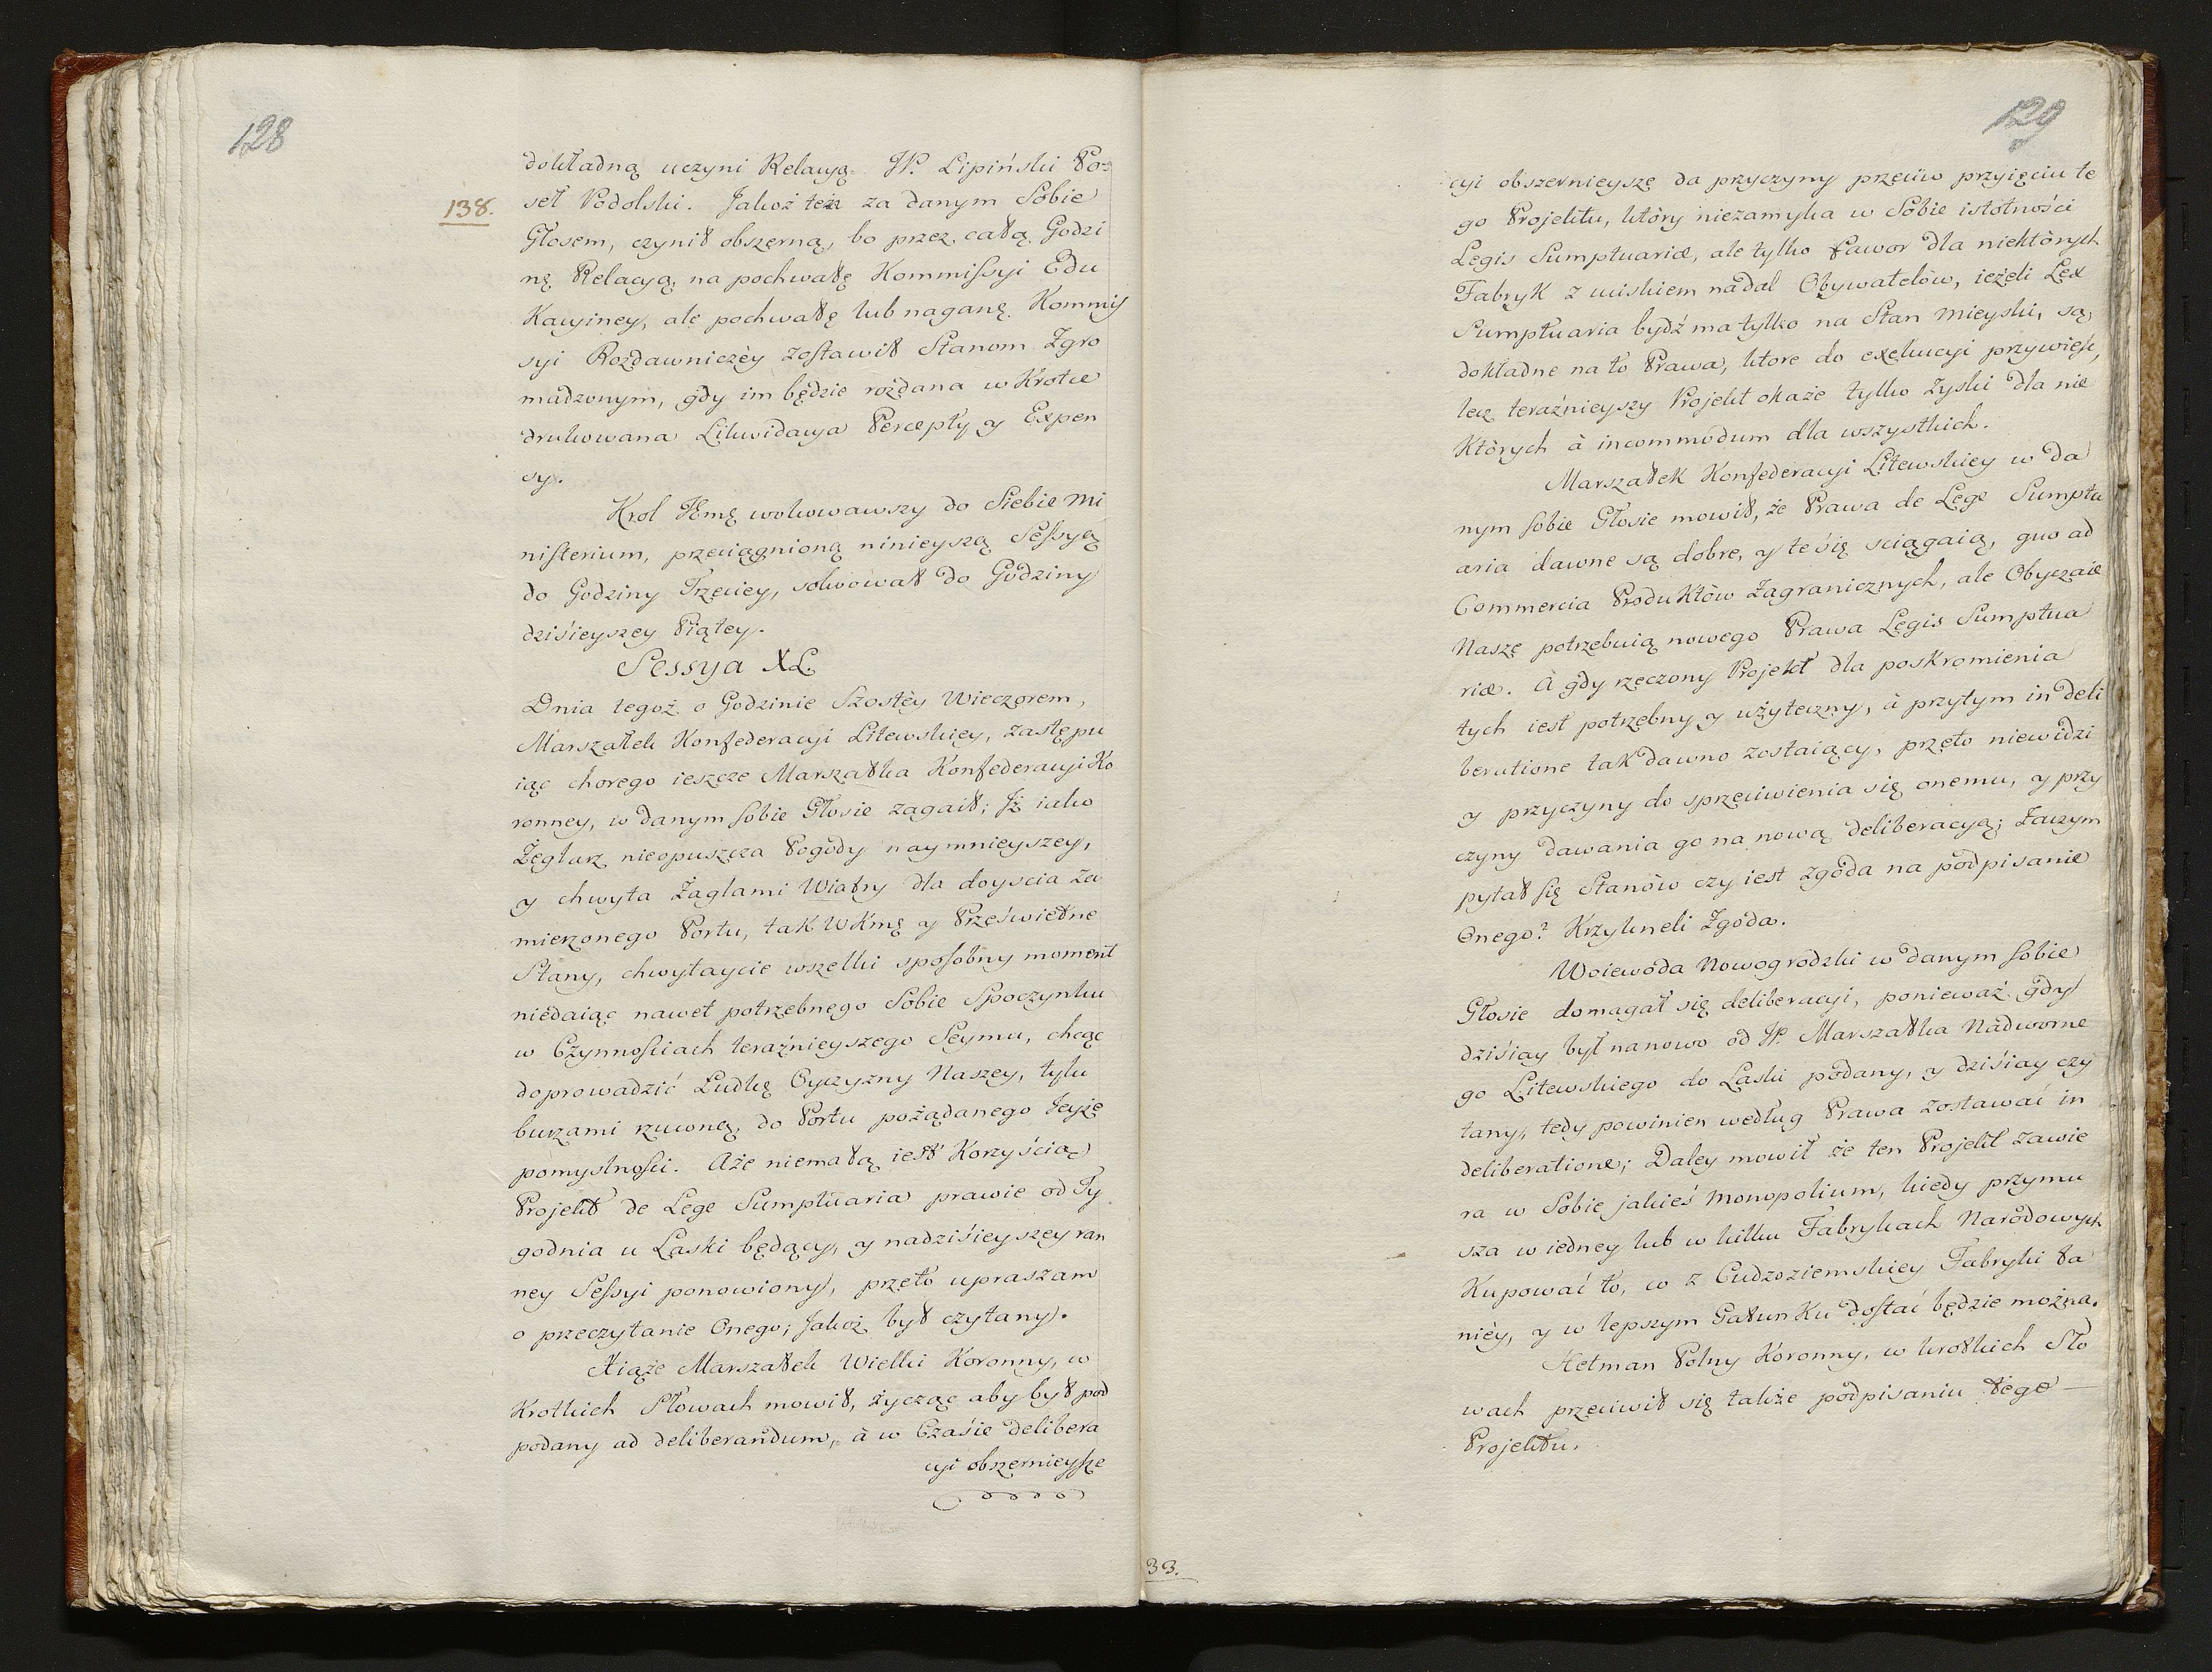 128
dokładną uczyni Relacyą JP. Lipiński Po=
138.
seł Podolski. Jakoż też za danym Sobie
Głosem, czynił obszerną, bo przez całą Godzi
nę Relacyą, na pochwałę Kommissyi Edu
Kacyiney, ale pochwałę lub naganę Kommis
syi Rozdawniczéy zostawił Stanom Zgro
madzonym, gdy im będzie rozdana w Krotce
drukowana Likwidacya Percepty y Expen
sy.
Krol Jmę wokowawszy do Siebie Mi
nisterium, przeciągnioną ninieyszą Sessyą
do Godziny Trzeciey, solwował do Godziny
dzisieyszey Piątey.
Sessya XL.
Dnia tegoż o Godzinie Szostéy Wieczorem,
Marszałek Konfederacyi Litewskiey, zastępu
iąc chorego ieszcze Marszałka Konfederacyi Ko
ronney, w danym sobie Głosie zagaił; Jż iako
Żeglarz nieopuszcza Pogody naymnieyszey,
y chwyta Żaglami Wiatry dla doyscia Za
mierzonego Portu, tak WKmę y Prześwietne
Stany, chwytaycie wszelki sposobny moment
niedaiąc nawet potrzebnego Sobie Spoczynku
w Czynnościach teraźnieyszego Seymu, chcąc
doprowadzić Łudkę Oyczyzny Naszey, tylu
burzami rzuconą, do Portu pożądanego Jeyże
pomyslności. Aże niemałą iest Korzyścią
Projekt de Lege Sumptuaria prawie od Ty
godnia u Laski będący, y nadzisieyszey ran
ney Sessyi ponowiony, przeto upraszam
o przeczytanie Onego; Jakoż był czytany.
Xiąże Marszałek Wielki Koronny, w
Krotkich Słowach mowił, życząc aby był pod
podany ad deliberandum, à w Czasie delibera
cyi obszernieysze
129
cyi obszernieyszę da przyczyny przeciw przyięciu te
go Projektu, który niezamyka w Sobie istotności
Legis Sumptuariæ, ale tylko Fawor dla niektòrych
Fabryk z uciskiem nadal Obywatelów, ieżeli Lex
Sumptuaria bydź ma tylko na Stan Mieyski, są
dokładne na to Prawa, ktore do exekucyi przywieść,
lecz teraźnieyszy Projekt okaże tylko Zyski dla nie
Których à incommodum dla wszystkich.
Marszałek Konfederacyi Litewskiey w da
nym sobie Głosie mowił, że Prawa de Lege Sumptu
aria dawne są dobre, y te się sciągaią, quo ad
Commercia Produktów Zagranicznych, ale Obyczaie
Nasze potrzebuią nowego Prawa Legis Sumptua
riæ. A gdy rzeczony Projekt dla poskromienia
tych iest potrzebny y użyteczny, à przytym in deli
beratione tak dawno zostaiący, przeto niewidzi
y przyczyny do sprzeciwienia się onemu, y przy
czyny dawania go na nową deliberacyą; Zaczym
pytał się Stanów czy iest zgoda na podpisanie
Onego? Krzykneli Zgoda.
Woiewoda Nowogrodzki w danym sobie
Głosie domagał się deliberacyi, ponieważ gdy
dzisiay był nanowo od JP. Marszałka Nadworne
go Litewskiego do Laski podany, y dzisiay czy
tany, tedy powinien według Prawa zostawać in
deliberatione; Daley mowił że ten Projekt zawie
ra w Sobie jakieś Monopolium, kiedy przymu
sza w iedney lub w kilku Fabrykach Narodowych
Kupować to, co z Cudzoziemskiey Fabryki ta
niéy, y w lepszym Gatunku dostać będzie można.
Hetman Polny Koronny, w krotkich Sło
wach przeciwił się także podpisaniu tego
Projektu.
33.